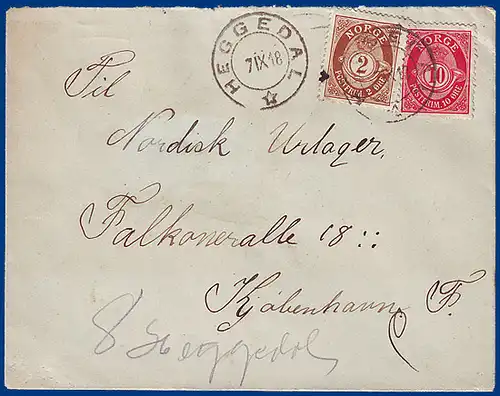 HEGGEDAL
7 IX 18
NORGE
2
POSTFRIM. 2 ØRE
NORGE
10
POSTFRIM. 10 ØRE
Til
Nordisk Urlager,
Falkoneralle 18::
Kjöbenhavn, F.
Heggedal